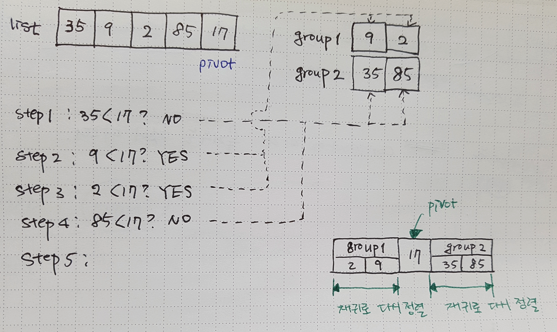 list 35 9 2 85 17
pivot
group1 9 2
group2 35 85
Step1 : 35<17? NO
Step2 : 9<17? YES
Step3 : 2<17? YES
Step4 : 85<17? NO
Step5 :
pivot
group1 17 group2
2 9 35 85
재귀로 다시 정렬 재귀로 다시 정렬